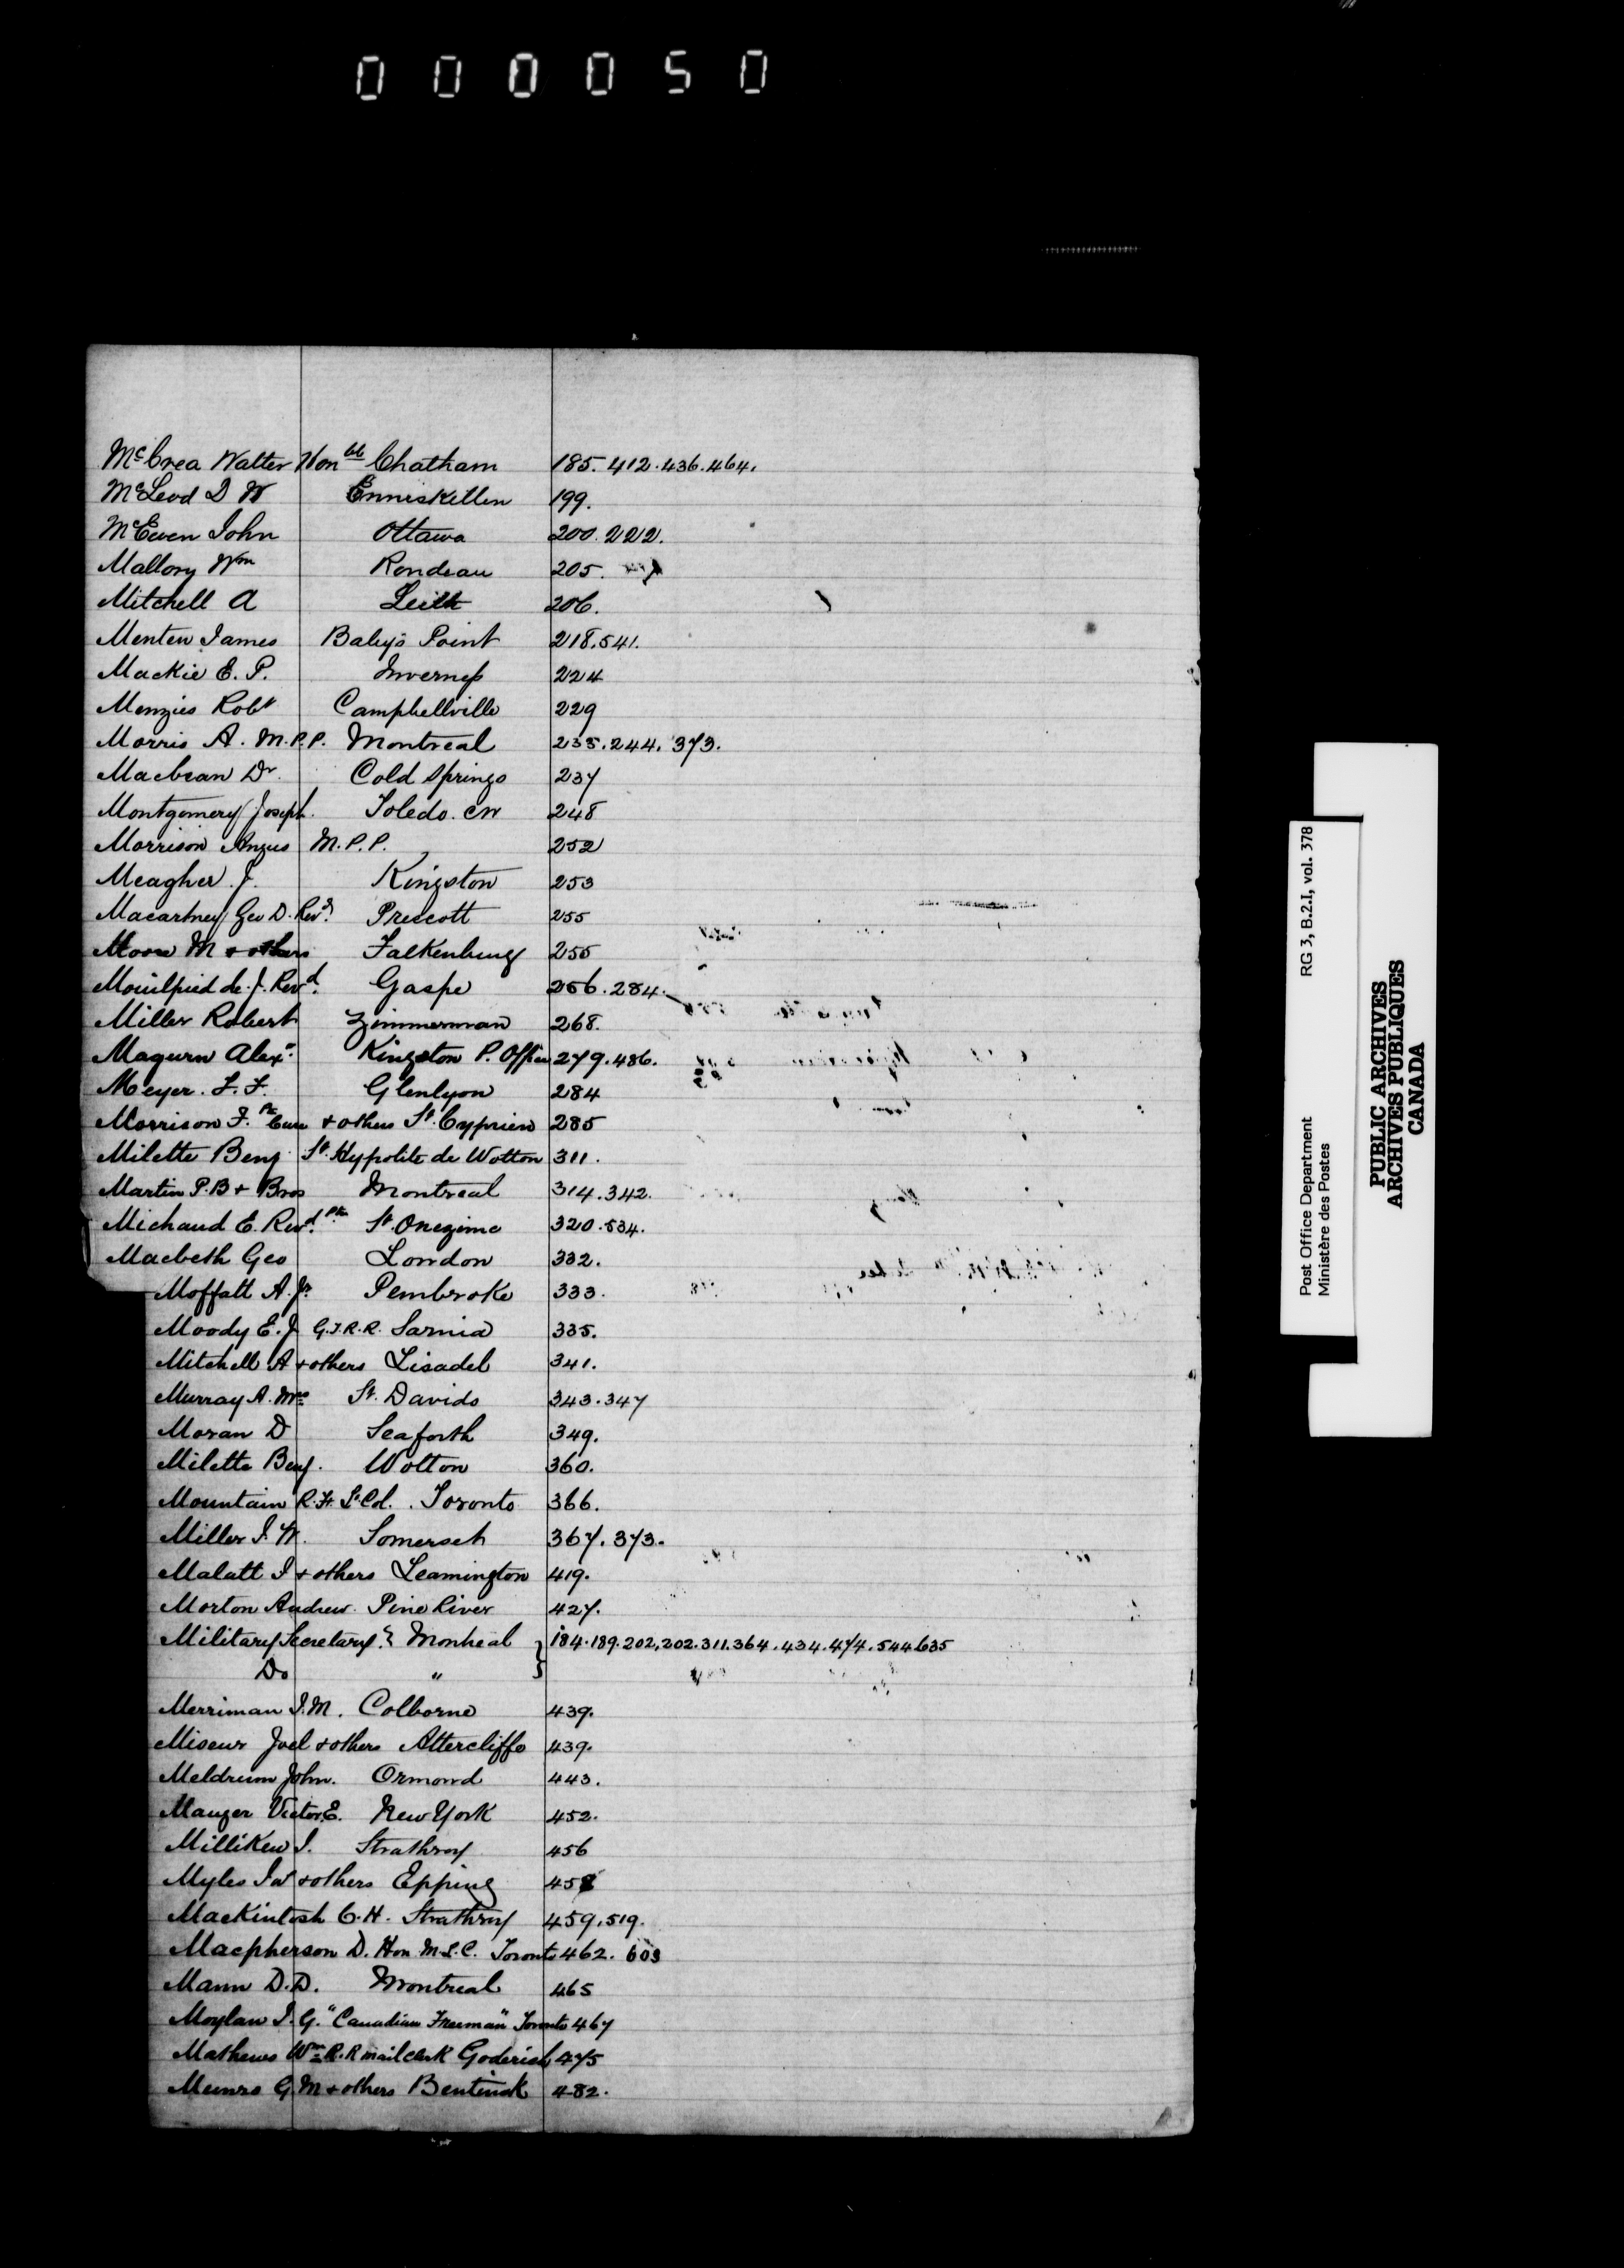 000050
McCrea Walter Honble Chatham 185. 412. 436. 464.
McLeod D W Enniskillen 199.
McEwen John Ottawa 200. 222.
Mallory Wm Rondeau 205.
Mitchell A Leith 206.
Menten James Baley's Point 218. 541.
Mackie E. P. Inverness 224
Menzies Robt Campbellville 229
Morris A. M.P.P. Montreal 235. 244. 373.
Macbean Dr. Cold Springs 237
Montgomery Joseph. Toledo. CW 248
Morrison Angus M.P.P. 252
Meagher J. Kingston 253
Macartney Geo D. Revd. Prescott 255
Moore M + others Falkenburg 255
Mouilpied de. J. Revd. Gaspe 256. 284.
Miller Robert Zimmerman 268.
Magurn Alexr. Kingston P. Office 279. 486.
Meyer. F. F. Glenlyon 284
Morrison F. Ptr Cure + others St. Cyprien 285
Milette Benj. St. Hypolite de Wotton 311.
Martin P. B + Bros Montreal 314. 342.
Michaud E. Revd. Ptr St. Onezime 320. 534.
Macbeth Geo London 332.
Moffatt A. Jr. Pembroke 333.
Moody E. J G.T.R.R. Sarnia 335.
Mitchell A + others Lisadel 341.
Murray A. Mrs St. Davids 343. 347
Moran D Seaforth 349.
Milette Benj. Wotton 360.
Mountain R. H. Lt. Col. Toronto 366.
Miller J. W. Somerset 367. 373.
Malatt J + others Leamington 419.
Morton Andrew. Pine River 427.
Military Secretary. } Montreal } 184. 189. 202, 202. 311. 364. 434. 474. 544 635
Do "
Merriman J. M. Colborne 439.
Miseur Joel + others Attercliffe 439.
Meldrum John. Ormond 443.
Mauger Victor. E. New York 452.
Milliken J. Strathroy 456
Myles Jas + others Epping 458
MacKintosh C. H. Strathroy 459. 519.
Macpherson D. Hon M.L.C. Toronto 462. 603
Mann D. D. Montreal 465
Moylan J. G. "Canadian Freeman" Toronto 467
Mathews Wm R. R mail clerk Goderich 475
Munro G M + others Bentinck 482.
Post Office Department RG 3, B.2.I, vol. 378
Ministère des Postes
PUBLIC ARCHIVES
ARCHIVES PUBLIQUES
CANADA